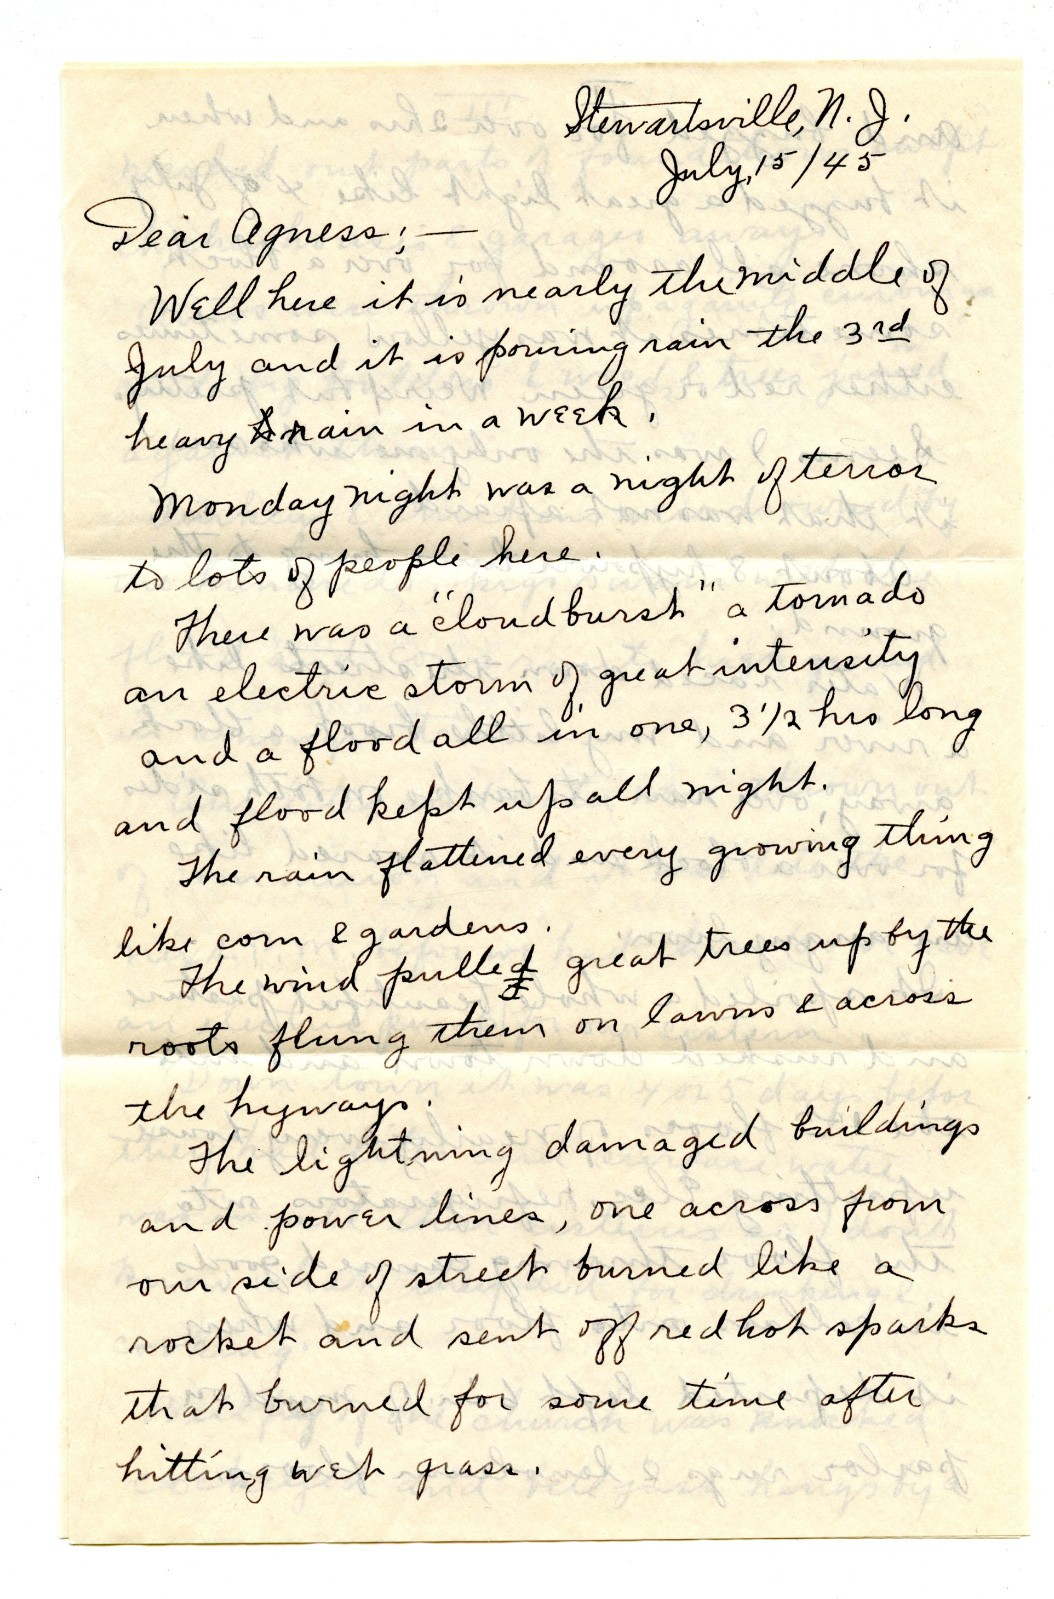 Stewartsville, N. J.
July, 15/45
Dear Agness; —
Well here it is nearly the middle of
July and it is pouring rain the 3rd
heavy rain in a week.
Monday night was a night of terror
to lots of people here.
There was a "cloudburst" a tornado
an electric storm of great intensity
and a flood all in one, 3 1/2 hrs long
and flood kept up all night.
The rain flattened every growing thing
like corn & gardens.
The wind pulled great trees up by the
roots flung them on lawns & across
the hyways.
The lightning damaged buildings
and power lines, one across from
our side of street burned like a
rocket and sent off red hot sparks
that burned for some time after
hitting wet grass.